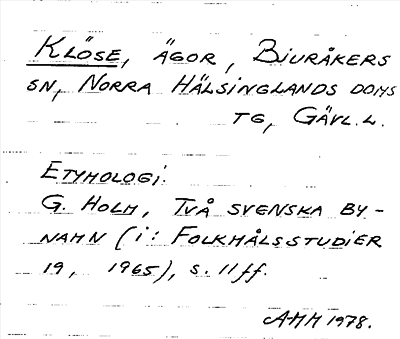 KLÖSE, ÄGOR, BJURÅKERS
SN, NORRA HÄLSINGLANDS DOMS
TG, GÄVL.L.
ETYMOLOGI:
G. HOLM, TVÅ SVENSKA BY-
NAMN (I: FOLKMÅLSSTUDIER
19, 1965), S. 11 ff.
AMM 1978.